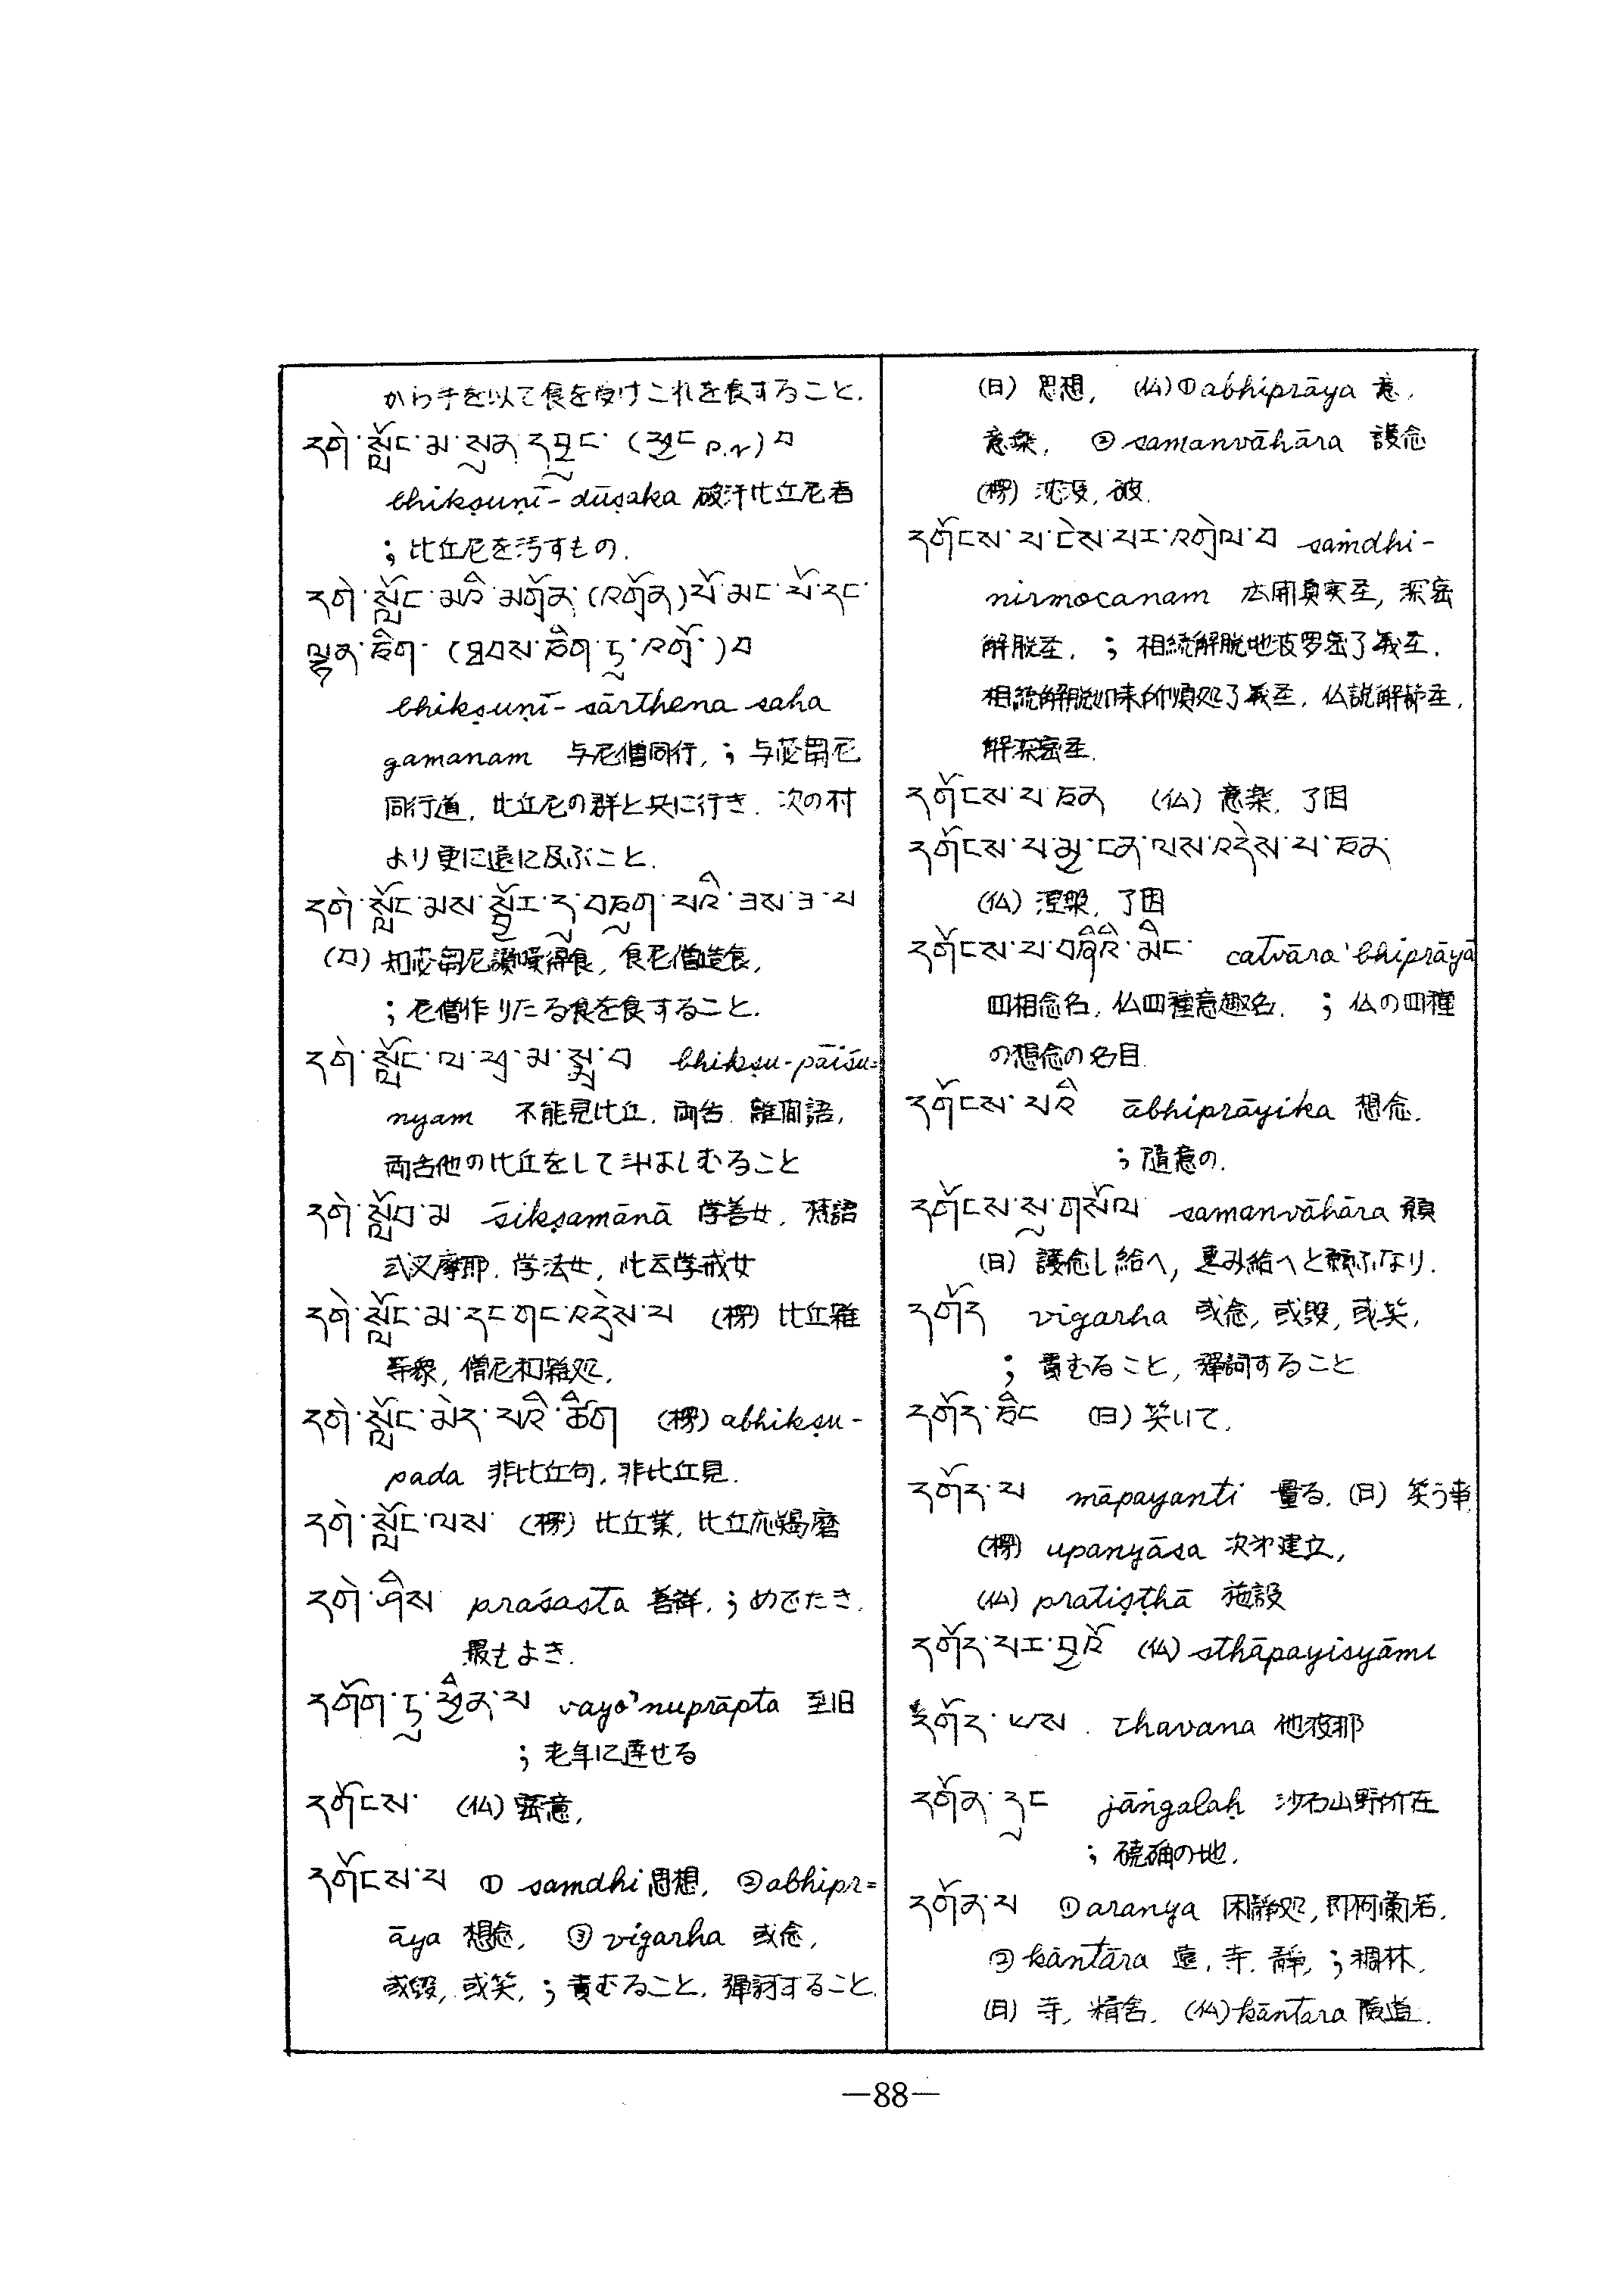 から手を以て食を受けこれを食すること.
དགེ་སློང་མ་སུན་དབྱུང་ (ཕྱུང P.N) བ
bhikṣuṇī-dūṣaka 破汗比丘尼者
; 比丘尼を汚すもの.
དགེ་སློང་མའི་མགྲོན་(འགྲོན)པོ་མང་པོ་དང་
ལྷན་ཅིག་ (ཐབས་ཅིག་ཏུ་འགྲོ་)བ
bhikṣuṇī-sārthena saha
gamanam 与尼僧同行, ; 与苾芻尼
同行道, 比丘尼の群と共に行き. 次の村
より更に遠に及ぶこと.
དགེ་སློང་མས་སྦྱོར་དུ་བཅུག་པའི་ཟས་ཟ་བ
知苾芻尼讃嘆得食, 食尼僧造食,
; 尼僧作りたる食を食すること.
དགེ་སློང་ལ་ཕྲ་མ་སྨྲ་བ bhikṣu-pāiśu=
nyam 不能見比丘, 両舌. 離間語,
両舌他の比丘をして せしむること
དགེ་སློབ་མ śikṣamānā 学善女, 梵語
式叉摩耶. 学法女, 此云学戒女
དགེ་སློང་མ་དང་གང་འདྲེས་པ (楞) 比丘雜
等衆, 僧尼和雜処.
དགེ་སློང་མེད་པའི་ཚིག (楞) abhikṣu-
pada 非比丘句, 非比丘見.
དགེ་སློང་ལས་ (楞) 比丘業, 比丘応羯磨
དགེ་ཤིས praśasta 善祥. ; めでたき.
最もよき.
དགོག་ཏུ་ཕྱིན་པ vayo'nuprāpta 至旧
; 老年に達せる
དགོངས་ (仏) 密意,
དགོངས་པ ① samdhi 思想, ② abhipr=
āya 想念, ③ vigarha 或念,
或毀, 或笑, ; 責むること, 弾訶すること.
(日) 思想, (仏) ① abhiprāya 意,
意楽, ② samanvāhāra 護念
(楞) 沈没, 破.
དགོངས་པ་ངེས་པར་འགྲེལ་བ saṁdhi-
nirmocanam 広開真実圣, 深密
解脱圣. ; 相続解脱地波罗密了義圣.
相続解脱如来所順処了義圣, 仏説解節圣,
解深密圣.
དགོངས་པ་ཅན (仏) 意楽, 了因
དགོངས་པ་མྱ་ངན་ལས་འདས་པ་ཅན་
(仏) 涅槃, 了因
དགོངས་པ་བཞིའི་མིང་ catvāra'bhiprāyā
四相念名, 仏四種意趣名. ; 仏の四種
の想念の名目.
དགོངས་པའི ābhiprāyika 想念.
; 随意の.
དགོངས་སུ་གསོལ samanvāhāra 願
(日) 護念し給へ, 恵み給へと願ふなり.
དགོད vigarha 或念, 或毀, 或笑,
; 責むること, 弾訶すること
དགོད་ཅིང (日) 笑いて.
དགོད་པ māpayanti 量る. (日) 笑う事
(楞) upanyāsa 次第建立,
(仏) pratiṣṭhā 施設
དགོད་པར་བྱའོ (仏) sthāpayisyāmi
དགོད་ཡས. thavana 他波那
དགོན་དུང jāṅgalaḥ 沙石山野所在
; 磽确の地.
དགོན་པ ① aranya 閑静処, 即阿蘭若.
② kāntāra 遠, 寺. 静, ; 稠林.
(日) 寺, 精舎. (仏) kāntara 険道.
—88—